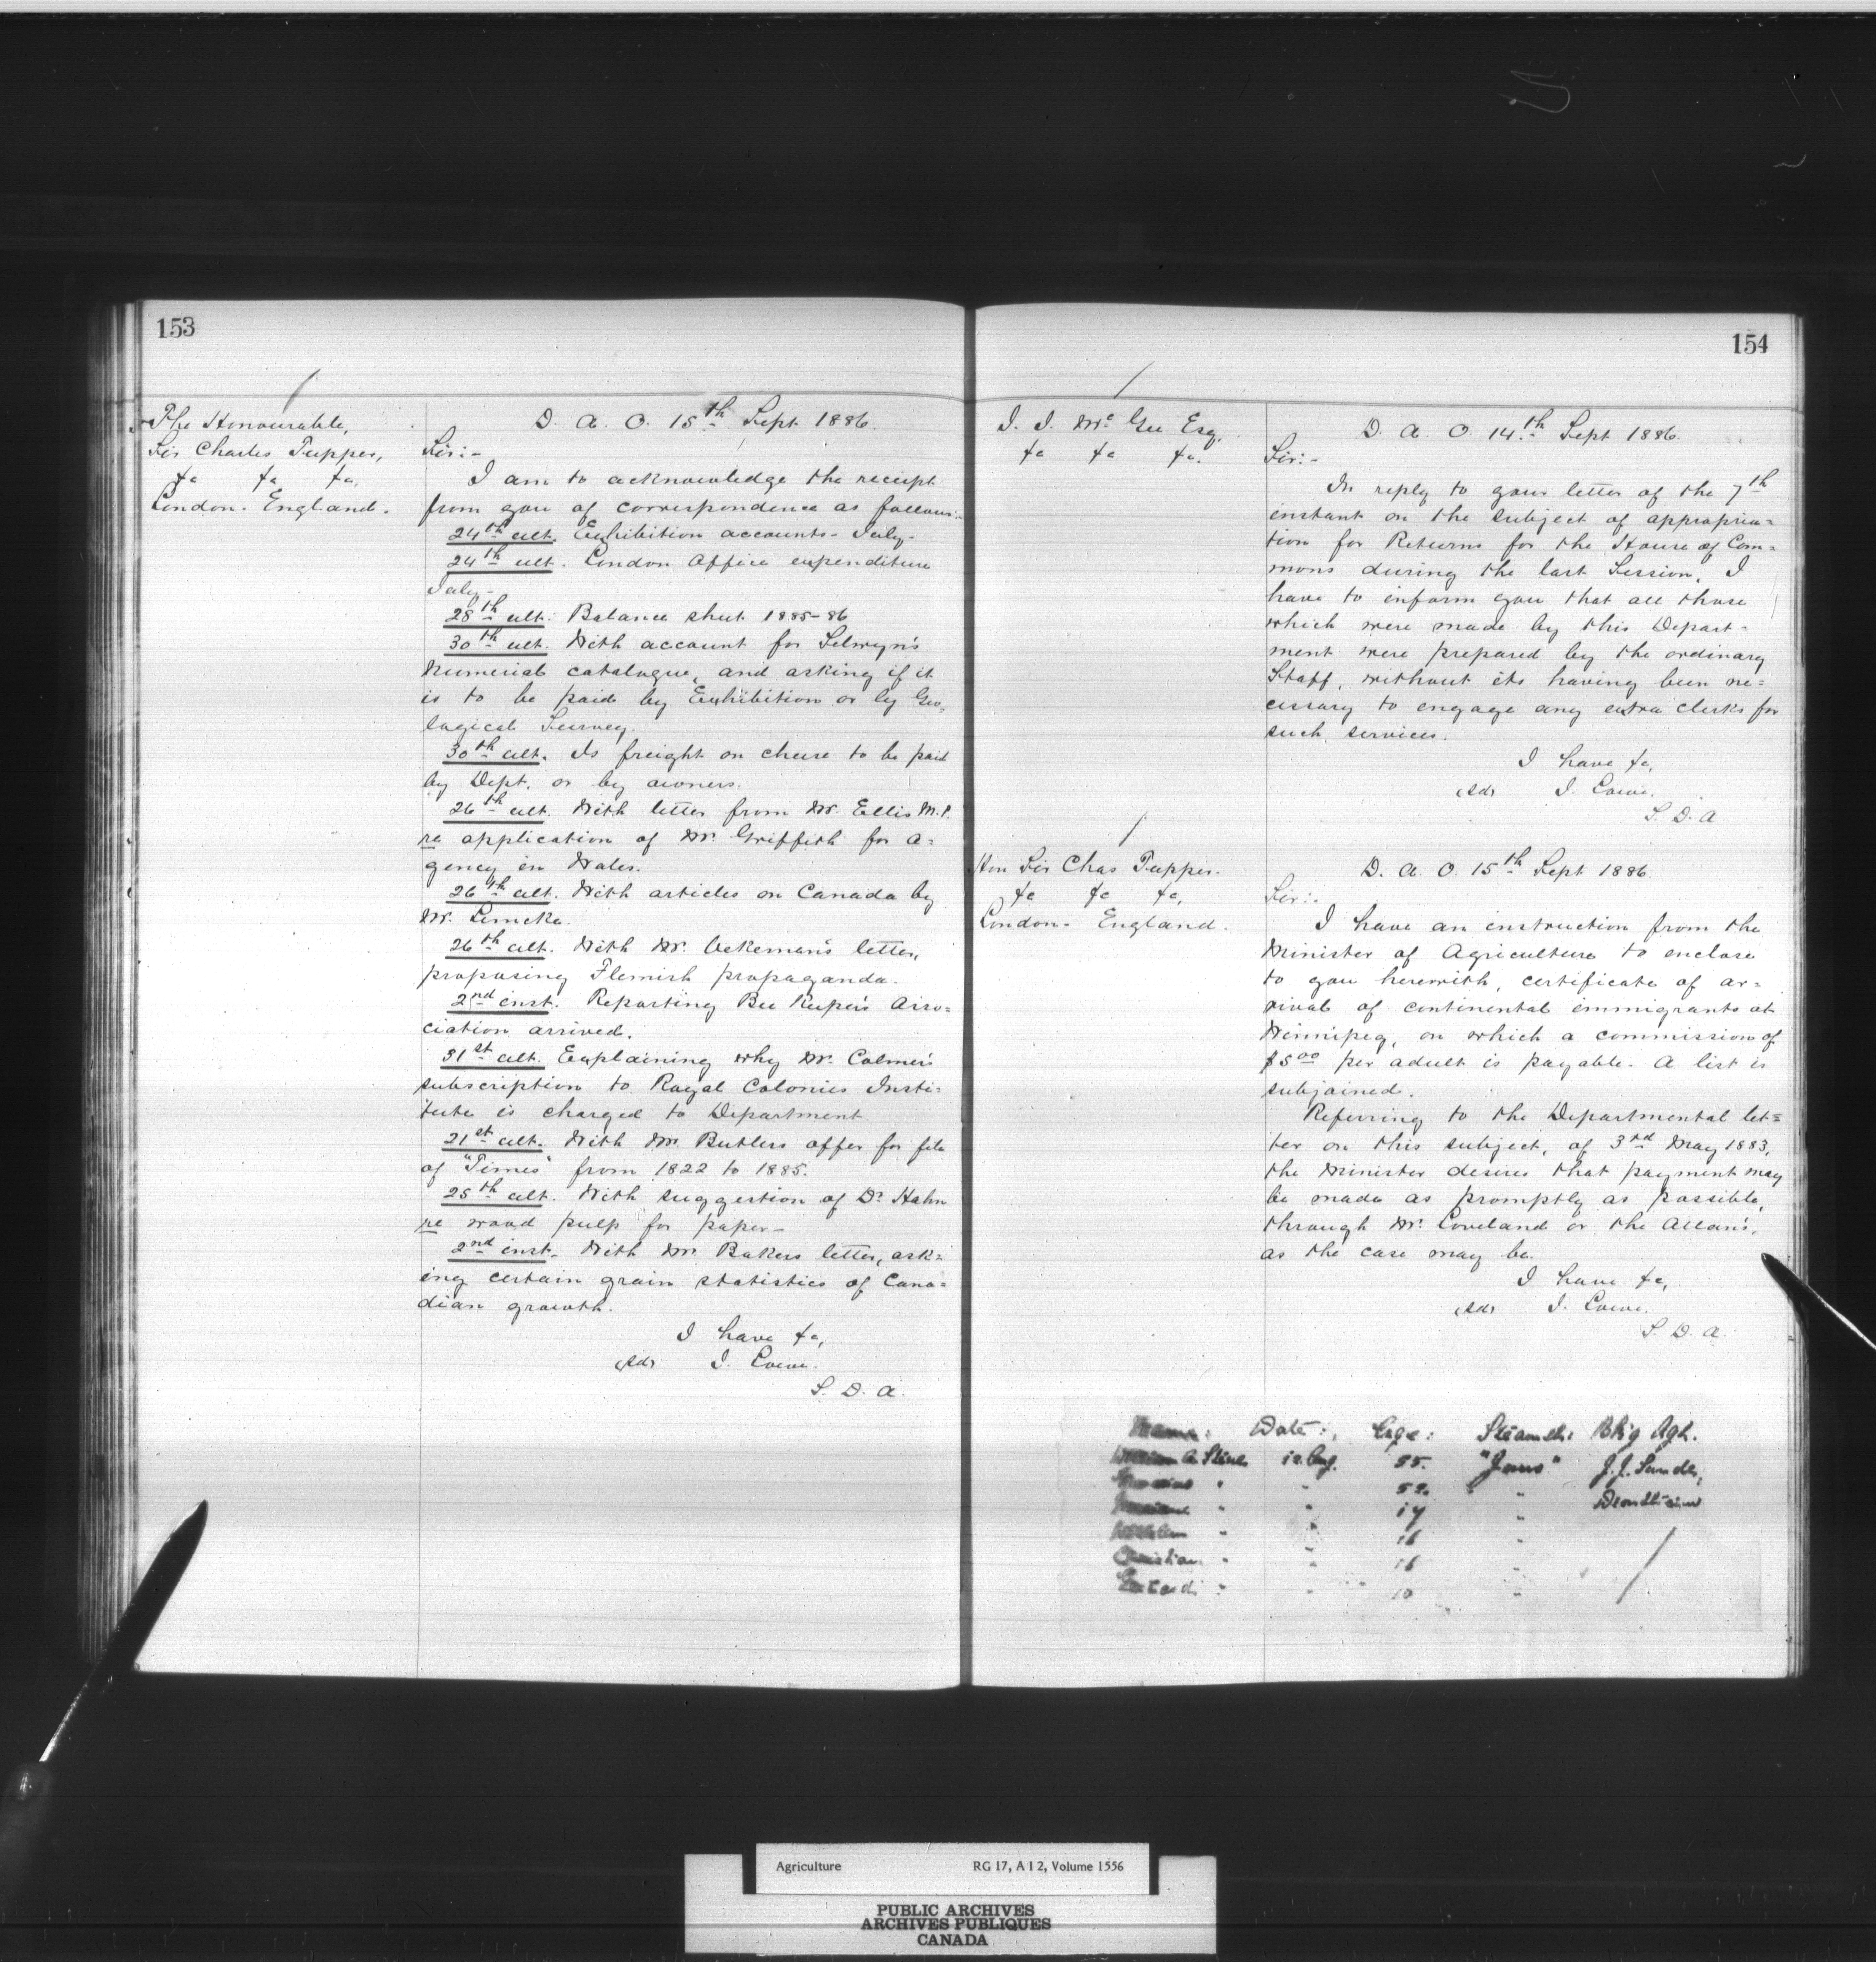 153
The Honourable,
Sir Charles Tupper,
&c &c &c,
London. England.
D. A. O. 15th Sept. 1886.
Sir:-
I am to acknowledge the receipt
from you of correspondence as follows:-
24th ult. Exhibition accounts - July -
24th ult. London Office expenditure
July -
28th ult. Balance sheet 1885-86
30th ult. With account for Selwyn's
Numerial catalogue, and asking if it
is to be paid by Exhibition or by Geo=
logical Survey.
30th ult. Is freight on cheese to be paid
by Dept. or by owners.
26th ult. With letter from Mr. Ellis M.P.
re application of Mr. Griffith for a=
gency in Wales.
26th ult. With articles on Canada by
Mr. Lemcke.
26th ult. With Mr. letter,
proposing Flemish propaganda.
2nd inst. Reporting Bee Keeper's Asso=
ciation arrived.
31st ult. Explaining why Mr. Colmer's
subscription to Royal Colonies Insti=
tute is charged to Department.
21st ult. With Mr. Butlers offer for file
of "Times" from 1822 to 1885.
25th ult. With suggestion of Dr. Hahn
re wood pulp for paper -
2nd inst. With Mr. Bakers letter, ask=
ing certain grain statistics of Cana=
dian growth.
I have &c,
(sd) J. Lowe.
S. D. A.
154
J. J. McGee Esq.
&c &c &c.
D. A. O. 14th Sept 1886.
Sir:-
In reply to your letter of the 7th
instant on the subject of appropria=
tion for Returns for the House of Com=
mons during the last Session, I
have to inform you that all those
which were made by this Depart=
ment were prepared by the ordinary
Staff, without its having been ne=
cessary to engage any extra clerks for
such services.
I have &c,
(sd) J. Lowe.
S. D. A
Hon Sir Chas Tupper.
&c &c &c,
London. England.
D. A. O. 15th Sept 1886.
Sir:-
I have an instruction from the
Minister of Agriculture to enclose
to you herewith, certificate of ar=
rival of continental immigrants at
Winnipeg, on which a commission of
$5.00 per adult is payable. A list is
subjoined.
Referring to the Departmental let=
ter on this subject, of 3rd May 1883,
the Minister desires that payment may
be made as promptly as possible,
through Mr. Loveland or the Allan's,
as the case may be.
I have &c,
(sd) J. Lowe.
S. D. A.
Name: Date: Age: Steamer: Bkg Agt.
A. 12. Aug. 55.
" " 52. "
" " 17 "
" " 16 "
Christian " " 16 "
" " 10 "
Agriculture RG 17, A I 2, Volume 1556
PUBLIC ARCHIVES
ARCHIVES PUBLIQUES
CANADA